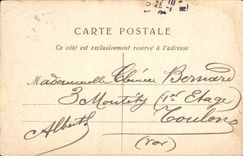 25
CARTE POSTALE
Ce côté est exclusivement réservé à l'adresse
Mademoiselle Bernard
3 (1er Etage)
Toulon
Albert (Var)